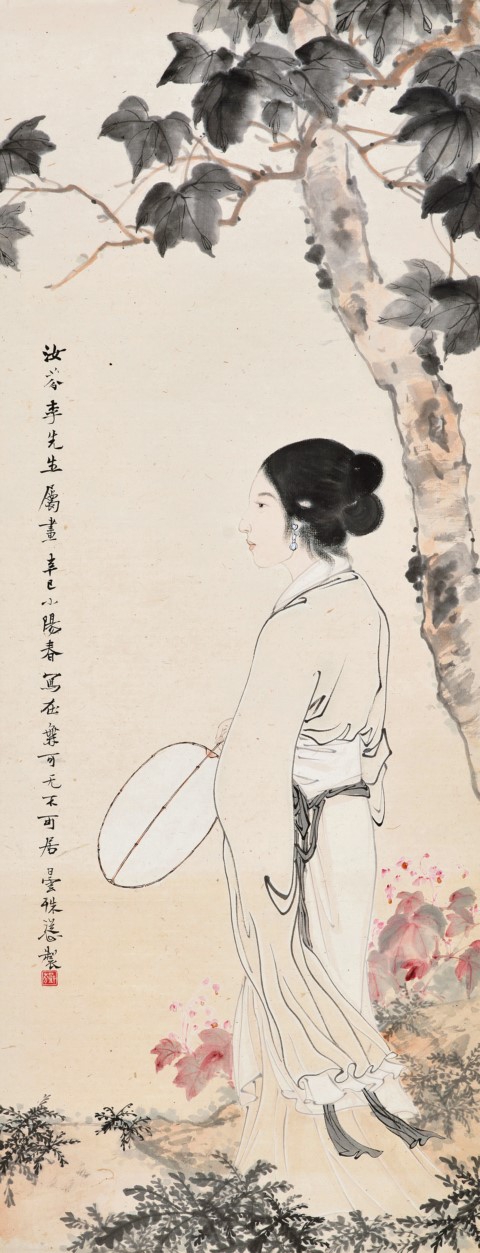 汝芬李先生屬畫 辛巳小陽春寫在無可无不可居 曇殊製